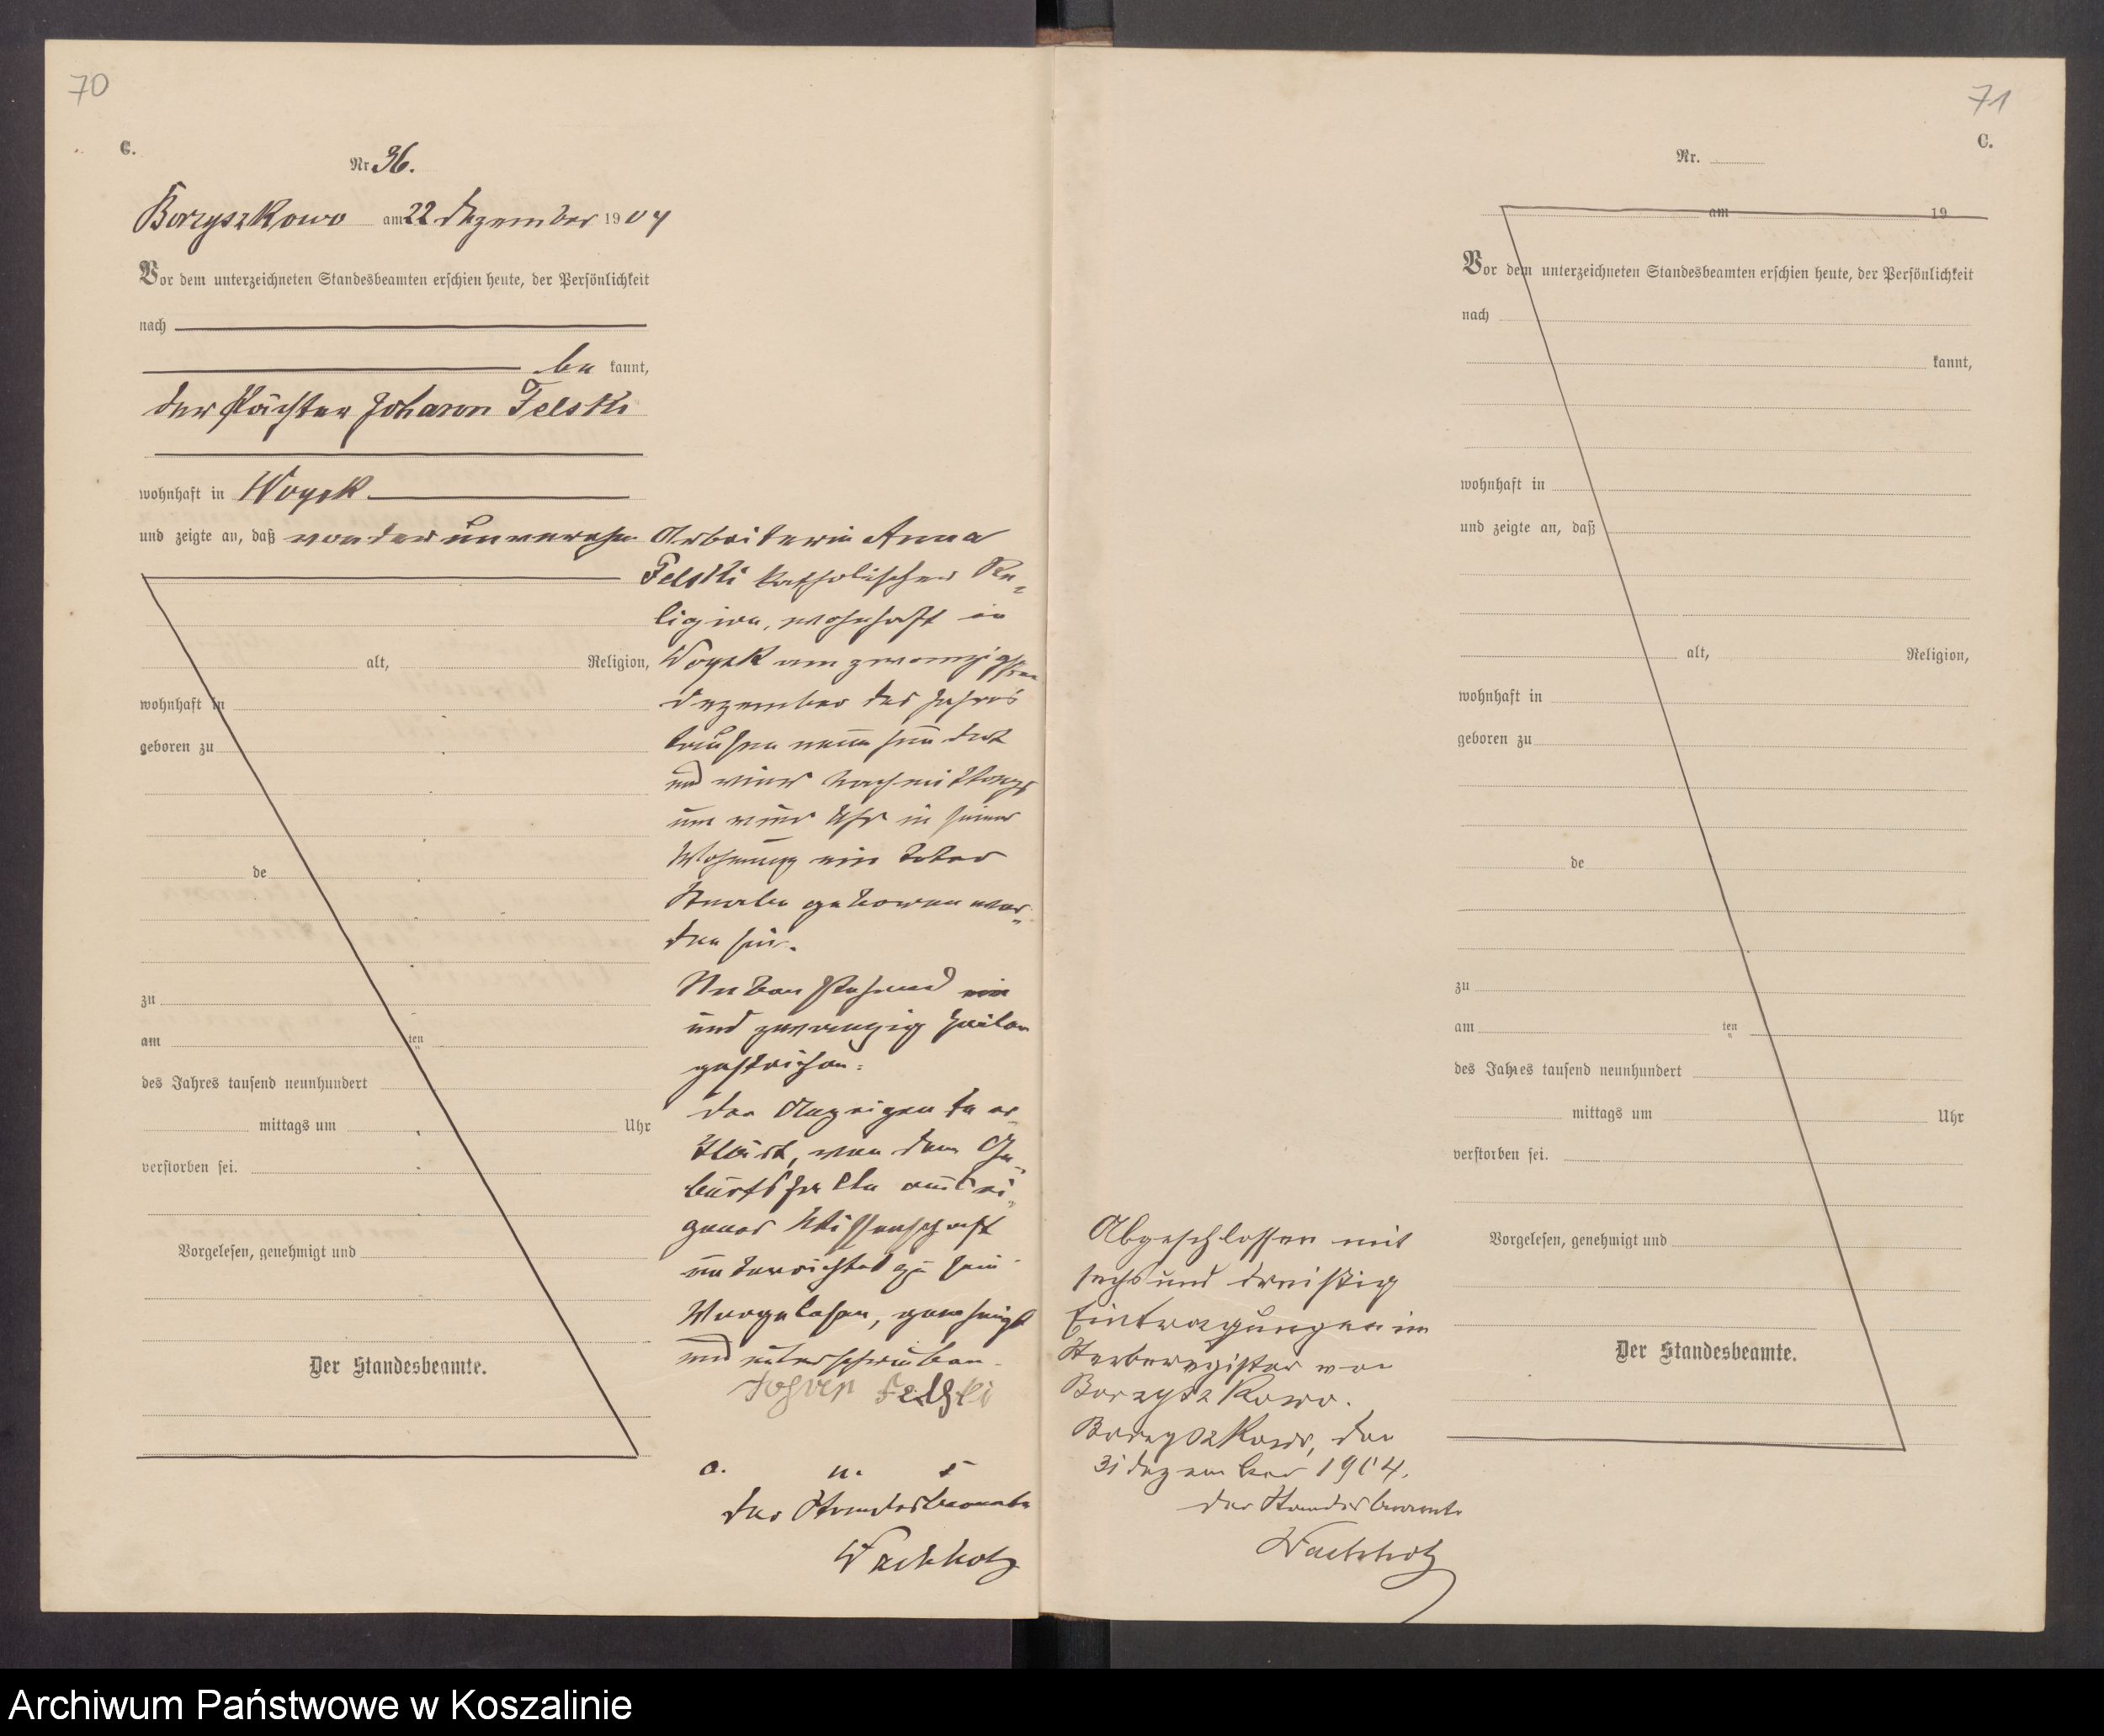 70
C.
Nr. 36.
Borzyszkowo am 22 Dezember 1904
Vor dem unterzeichneten Standesbeamten erschien heute, der Persönlichkeit
nach
be kannt,
der Pächter Johann Felski
wohnhaft in Woysk
und zeigte an, daß von der unvereh. Arbeiterin Anna
Felski katholischer Re-
ligion, wohnhaft in
Woysk am zwanzigsten
Dezember des Jahres
tausen neun hundert
und vier Nachmittags
um vier Uhr in seiner
Wohnung ein todter
Knabe geboren wor-
den sei.
Nebenstehend ein
und zwanzig Zeilen
gestrichen.
Der Anzeigende er-
klärt, von dem Ge-
burtsfalle aus ei-
gener Wissenschaft
unterrichtet zu sein
Vorgelesen, genehmigt
und unterschrieben.
Johan Felski
alt, Religion,
wohnhaft in
geboren zu
de
zu
am ten
des Jahres tausend neunhundert
mittags um Uhr
verstorben sei.
Vorgelesen, genehmigt und
Der Standesbeamte.
a. u. s
der Standesbeamte
Wachholz
71
C.
Nr.
am 19
Vor dem unterzeichneten Standesbeamten erschien heute, der Persönlichkeit
nach
kannt,
wohnhaft in
und zeigte an, daß
alt, Religion,
wohnhaft in
geboren zu
de
zu
am ten
des Jahres tausend neunhundert
mittags um Uhr
verstorben sei.
Vorgelesen, genehmigt und
Der Standesbeamte.
Abgeschlossen mit
sechs und dreißig
Eintragungen im
Sterberegister von
Borzyszkowo.
Borzyszkowo, den
31 Dezember 1904.
der Standesbeamte
Wachholz
Archiwum Państwowe w Koszalinie